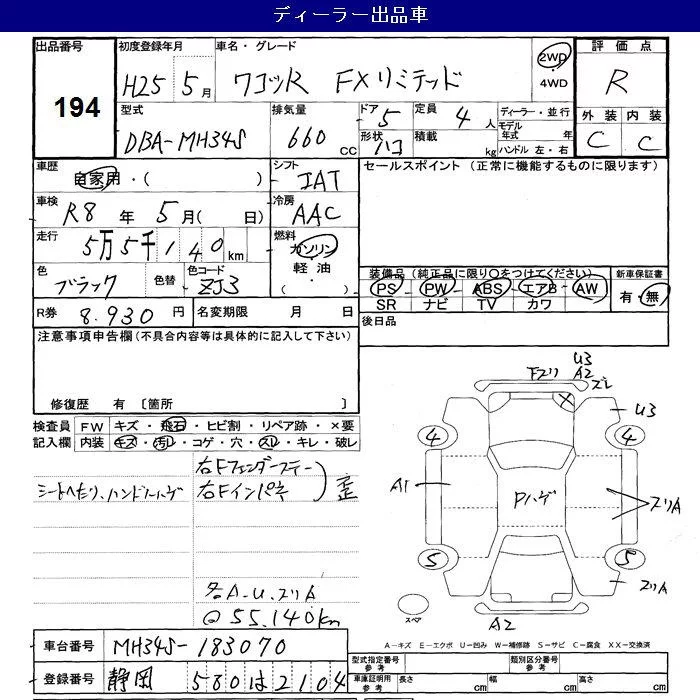 ディーラー出品車
出品番号 初度登録年月 車名・グレード 評価点
194
H25 5月 ワゴンR FXリミテッド 2WD ・4WD R
型式 排気量 ドア 定員 ディーラー・並行 外装 内装
DBA-MH34S 660 CC 5 4人 モデル年式 年 C C
形状 ハコ 積載 kg ハンドル 左・右
車歴 自家用・( ) シフト IAT セールスポイント (正常に機能するものに限ります)
車検 R8年 5月( 日) 冷房 AAC
走行 5万5千140km 燃料 ガソリン 軽油 ・( )
色 ブラック 色替 色コード ZJ3
装備品(純正品に限り○をつけてください) 新車保証書
PS PW ABS エアB AW 有・無
SR ナビ TV カワ
R券 8.930円 名変期限 月 日 後日品
注意事項申告欄(不具合内容等は具体的に記入して下さい)
修復歴 有 〔箇所 〕
検査員 FW キズ・飛石・ヒビ割・リペア跡・×要
記入欄 内装 キズ・汚レ・コゲ・穴・スレ・キレ・破レ
シートヘタリ、ハンドルハゲ
右Fフェンダーステー
右Fインパネ
歪
各A-U、スリA
@55.140km
Fスリ U3 A2 ズレ
U3
4 4
A1 Pハゲ スリA
5 5
スリA
スペア
A2
A-キズ E-エクボ U-凹み W-補修跡 S-サビ C-腐食 XX-交換済
車台番号 MH34S-183070
登録番号 静岡 580 は 2104
型式指定番号 参考 類別区分番号 参考
車庫証明用 参考 長さ cm 幅 cm 高さ cm